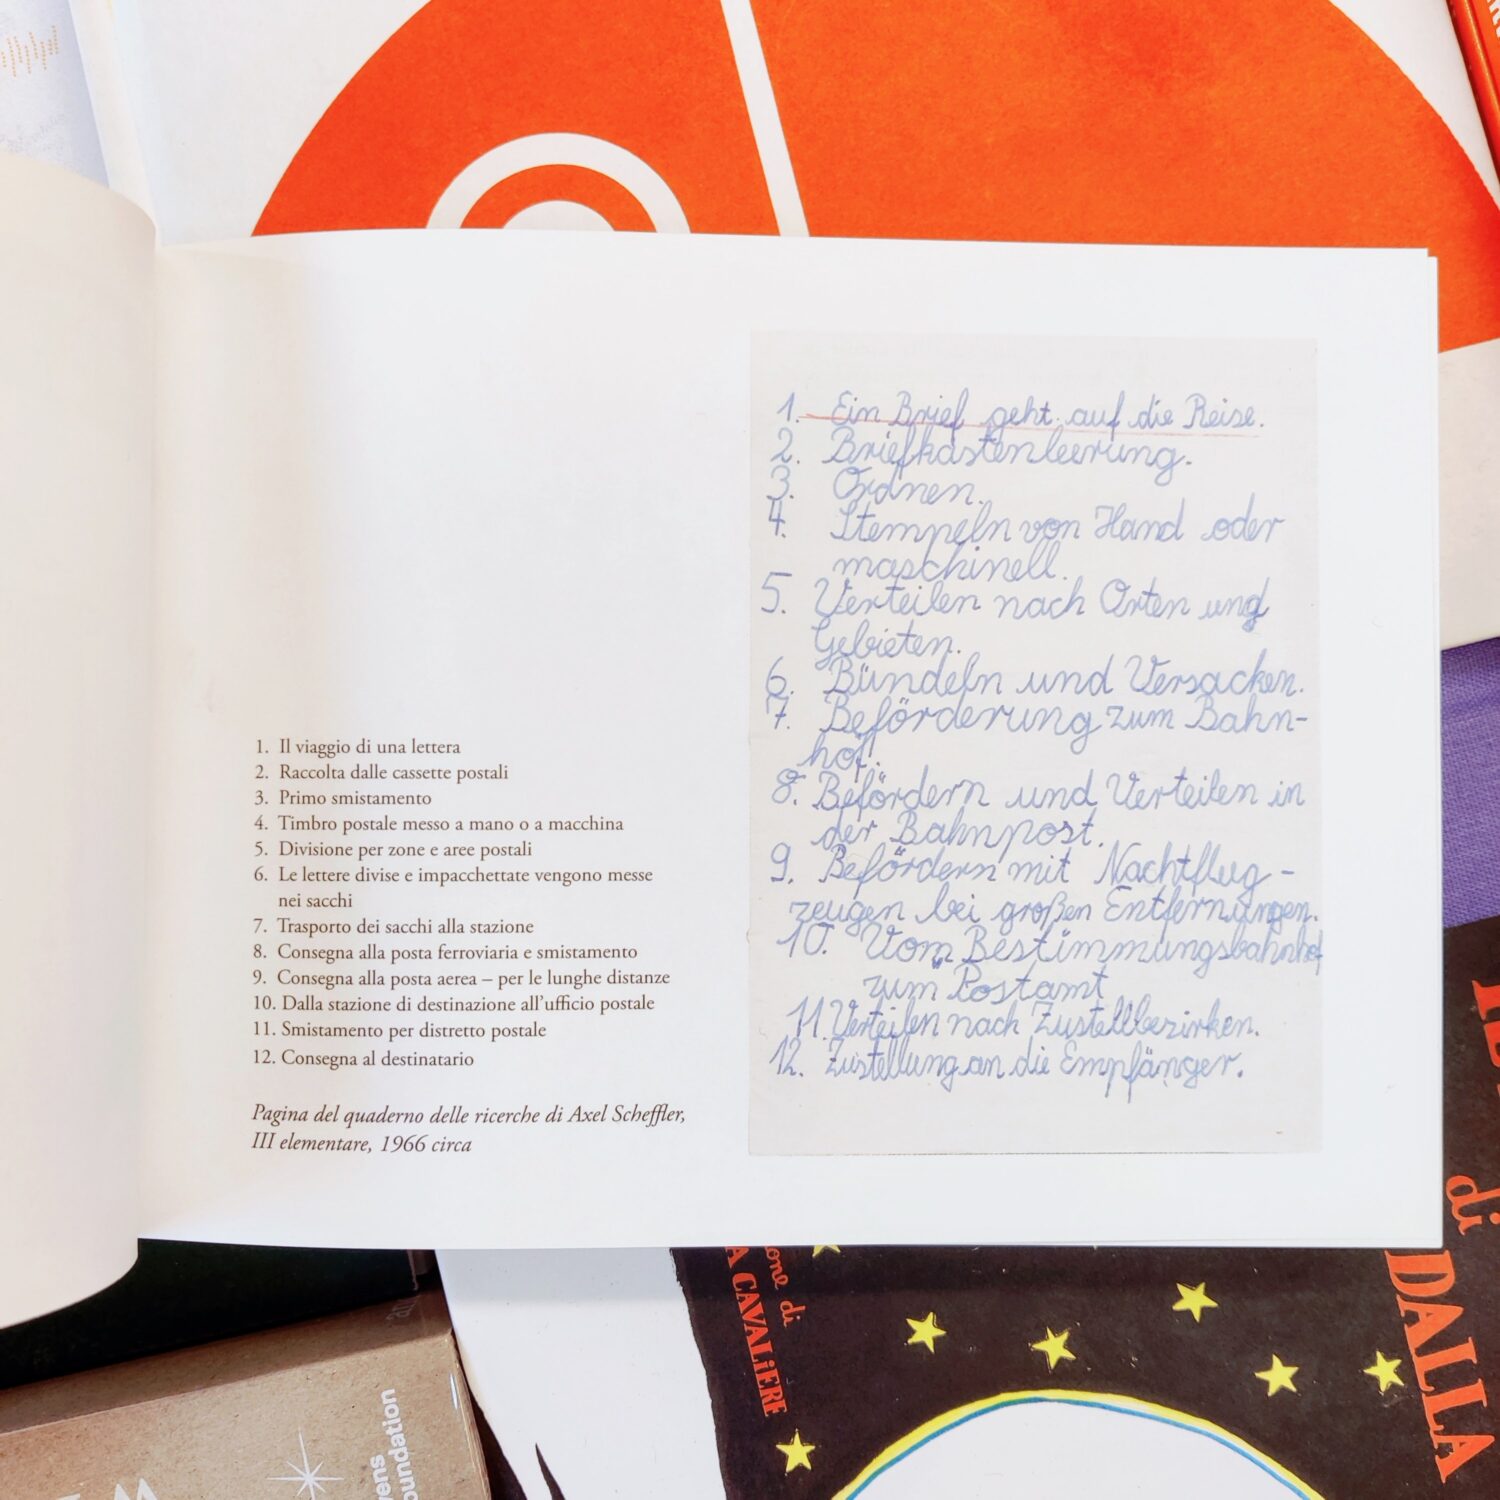 1. Il viaggio di una lettera
2. Raccolta dalle cassette postali
3. Primo smistamento
4. Timbro postale messo a mano o a macchina
5. Divisione per zone e aree postali
6. Le lettere divise e impacchettate vengono messe
nei sacchi
7. Trasporto dei sacchi alla stazione
8. Consegna alla posta ferroviaria e smistamento
9. Consegna alla posta aerea – per le lunghe distanze
10. Dalla stazione di destinazione all'ufficio postale
11. Smistamento per distretto postale
12. Consegna al destinatario
Pagina del quaderno delle ricerche di Axel Scheffler,
III elementare, 1966 circa
1. Ein Brief geht auf die Reise.
2. Briefkastenleerung.
3. Ordnen.
4. Stempeln von Hand oder
maschinell.
5. Verteilen nach Orten und
Gebieten.
6. Bündeln und Versacken.
7. Beförderung zum Bahn-
hof.
8. Befördern und Verteilen in
der Bahnpost.
9. Befördern mit Nachtflug-
zeugen bei großen Entfernungen.
10. Vom Bestimmungsbahnhof
zum Postamt
11. Verteilen nach Zustellbezirken.
12. Zustellung an die Empfänger.
di
DALLA
one di
A CAVALiERE
oundation